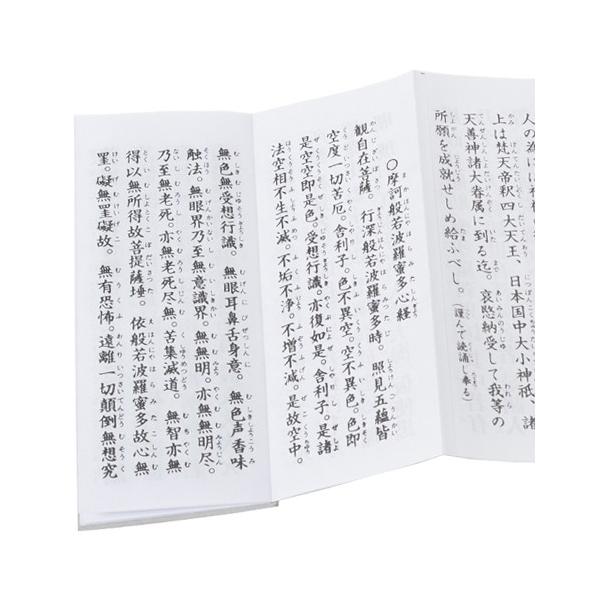 人の海には神祇
上は梵天帝釈四大天王、日本国中大小神祇、諸
天善神諸大眷属に到る迄。哀愍納受して我等の
所願を成就せしめ給ふべし。(謹んで読誦し奉る)
〇摩訶般若波羅蜜多心経
観自在菩薩。行深般若波羅蜜多時。照見五蘊皆
空度一切苦厄。舎利子。色不異空。空不異色。色即
是空空即是色。受想行識。亦復如是。舎利子。是諸
法空相不生不滅。不垢不浄。不増不減。是故空中。
無色無受想行識。無眼耳鼻舌身意。無色声香味
触法。無眼界乃至無意識界。無無明。亦無無明尽。
乃至無老死。亦無老死尽無。苦集滅道。無智亦無
得以無所得故菩提薩埵。依般若波羅蜜多故心無
罣。礙無罣礙故。無有恐怖。遠離一切顛倒無想究